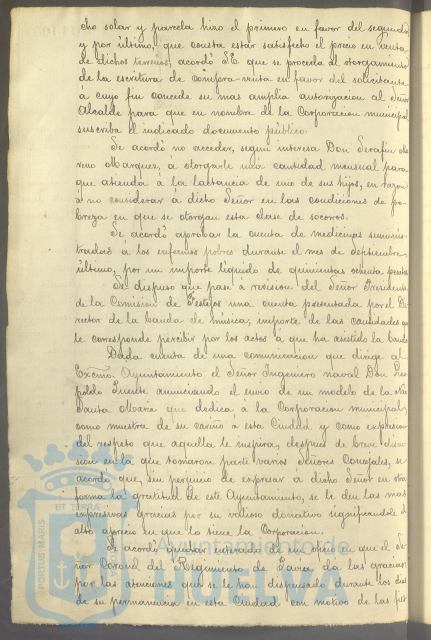 cho solar y parcela hizo el primero en favor del segundo
y por último, que consta estar satisfecho el precio en venta
de dichos terrenos, acordó S.E. que se proceda al otorgamiento
de la escritura de compra-venta en favor del solicitante
á cuyo fin concede su mas amplia autorizacion al Señor
Alcalde para que en nombre de la Corporacion municipal
suscriba el indicado documento público.
Se acordó no acceder, segun interesa Don Serafin
reno Marquez, á otorgarle una cantidad mensual para
que atienda á la lactancia de uno de sus hijos, en razon
á no considerar á dicho Señor en las condiciones de po-
breza en que se otorgan esta clase de socorros.
Se acordó aprobar la cuenta de medicinas suminis-
tradas á los enfermos pobres durante el mes de Septiembre
último, por un importe líquido de quinientas ochenta pesetas
Se dispuso que pase á revision del Señor Presidente
de la Comision de Festejos una cuenta presentada por el Di-
rector de la banda de música, importe de las cantidades
le corresponde percibir por los actos á que ha asistido la banda
Dada cuenta de una comunicacion que dirige al
Excmo. Ayuntamiento el Señor Ingeniero naval Don Leo-
poldo Puente anunciando el envio de un modelo de la Nao
Santa Maria que dedica á la Corporacion municipal,
como muestra de su cariño á esta Ciudad y como expresion
del respeto que aquella le inspira, despues de breve discu-
sion en la que tomaron parte varios Señores Concejales, se
acordó que, sin perjuicio de expresar á dicho Señor en otra
forma la gratitud de este Ayuntamiento, se le den las mas
expresivas gracias por su valioso donativo significandole el
alto aprecio en que lo tiene la Corporacion.
Se acordó quedar enterado de un oficio en que el Se-
ñor Coronel del Regimiento de Pavia da las gracias
por las atenciones que se le han dispensado durante los dias
de su permanencia en esta Ciudad con motivo de las fies
PORTUS MARIS ET TERRAE
Ayuntamiento de
HUELVA